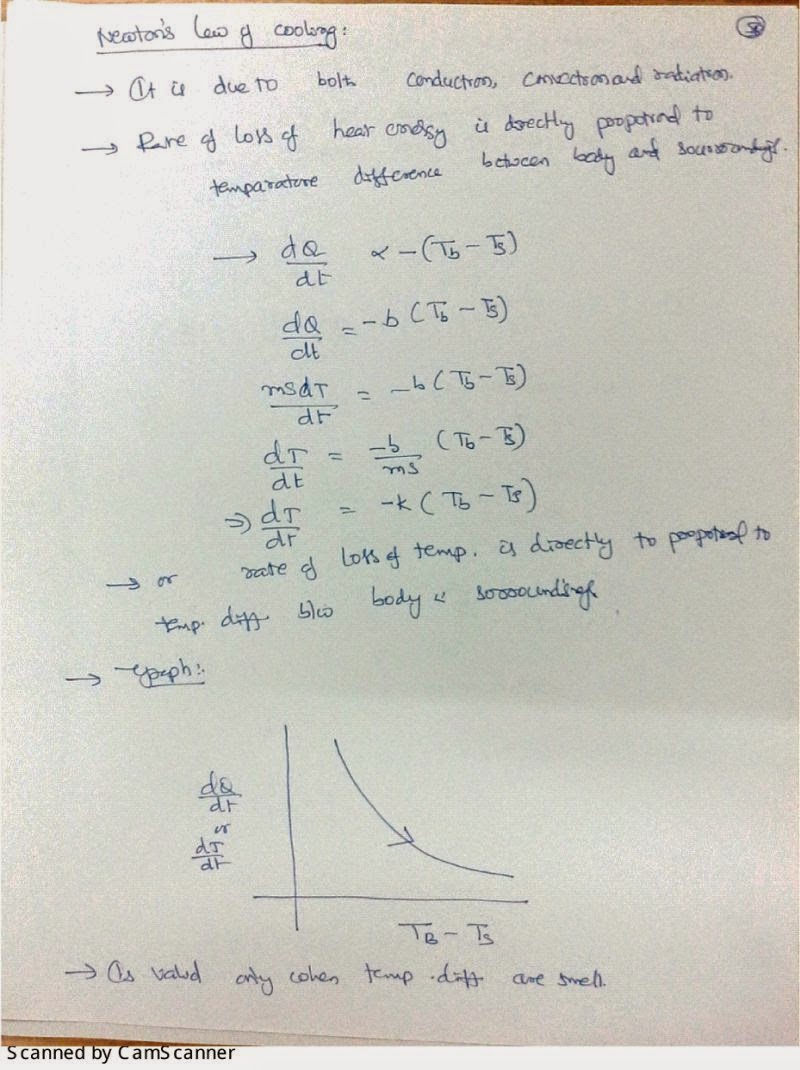 Newton's law of cooling:
58
→ It is due to both conduction, convection and radiation.
→ Rate of loss of heat energy is directly propotional to
temparature difference between body and sourroundings.
→ dQ/dt ∝ -(Tb - Ts)
dQ/dt = -b (Tb - Ts)
msdT/dt = -b (Tb - Ts)
dT/dt = -b/ms (Tb - Ts)
⇒ dT/dt = -k (Tb - Ts)
→ or rate of loss of temp. is directly to propotional to
temp. diff b/w body & sorroundings.
→ Graph:
dQ/dt
or
dT/dt
TB - Ts
→ Is valid only when temp. diff are small.
Scanned by CamScanner